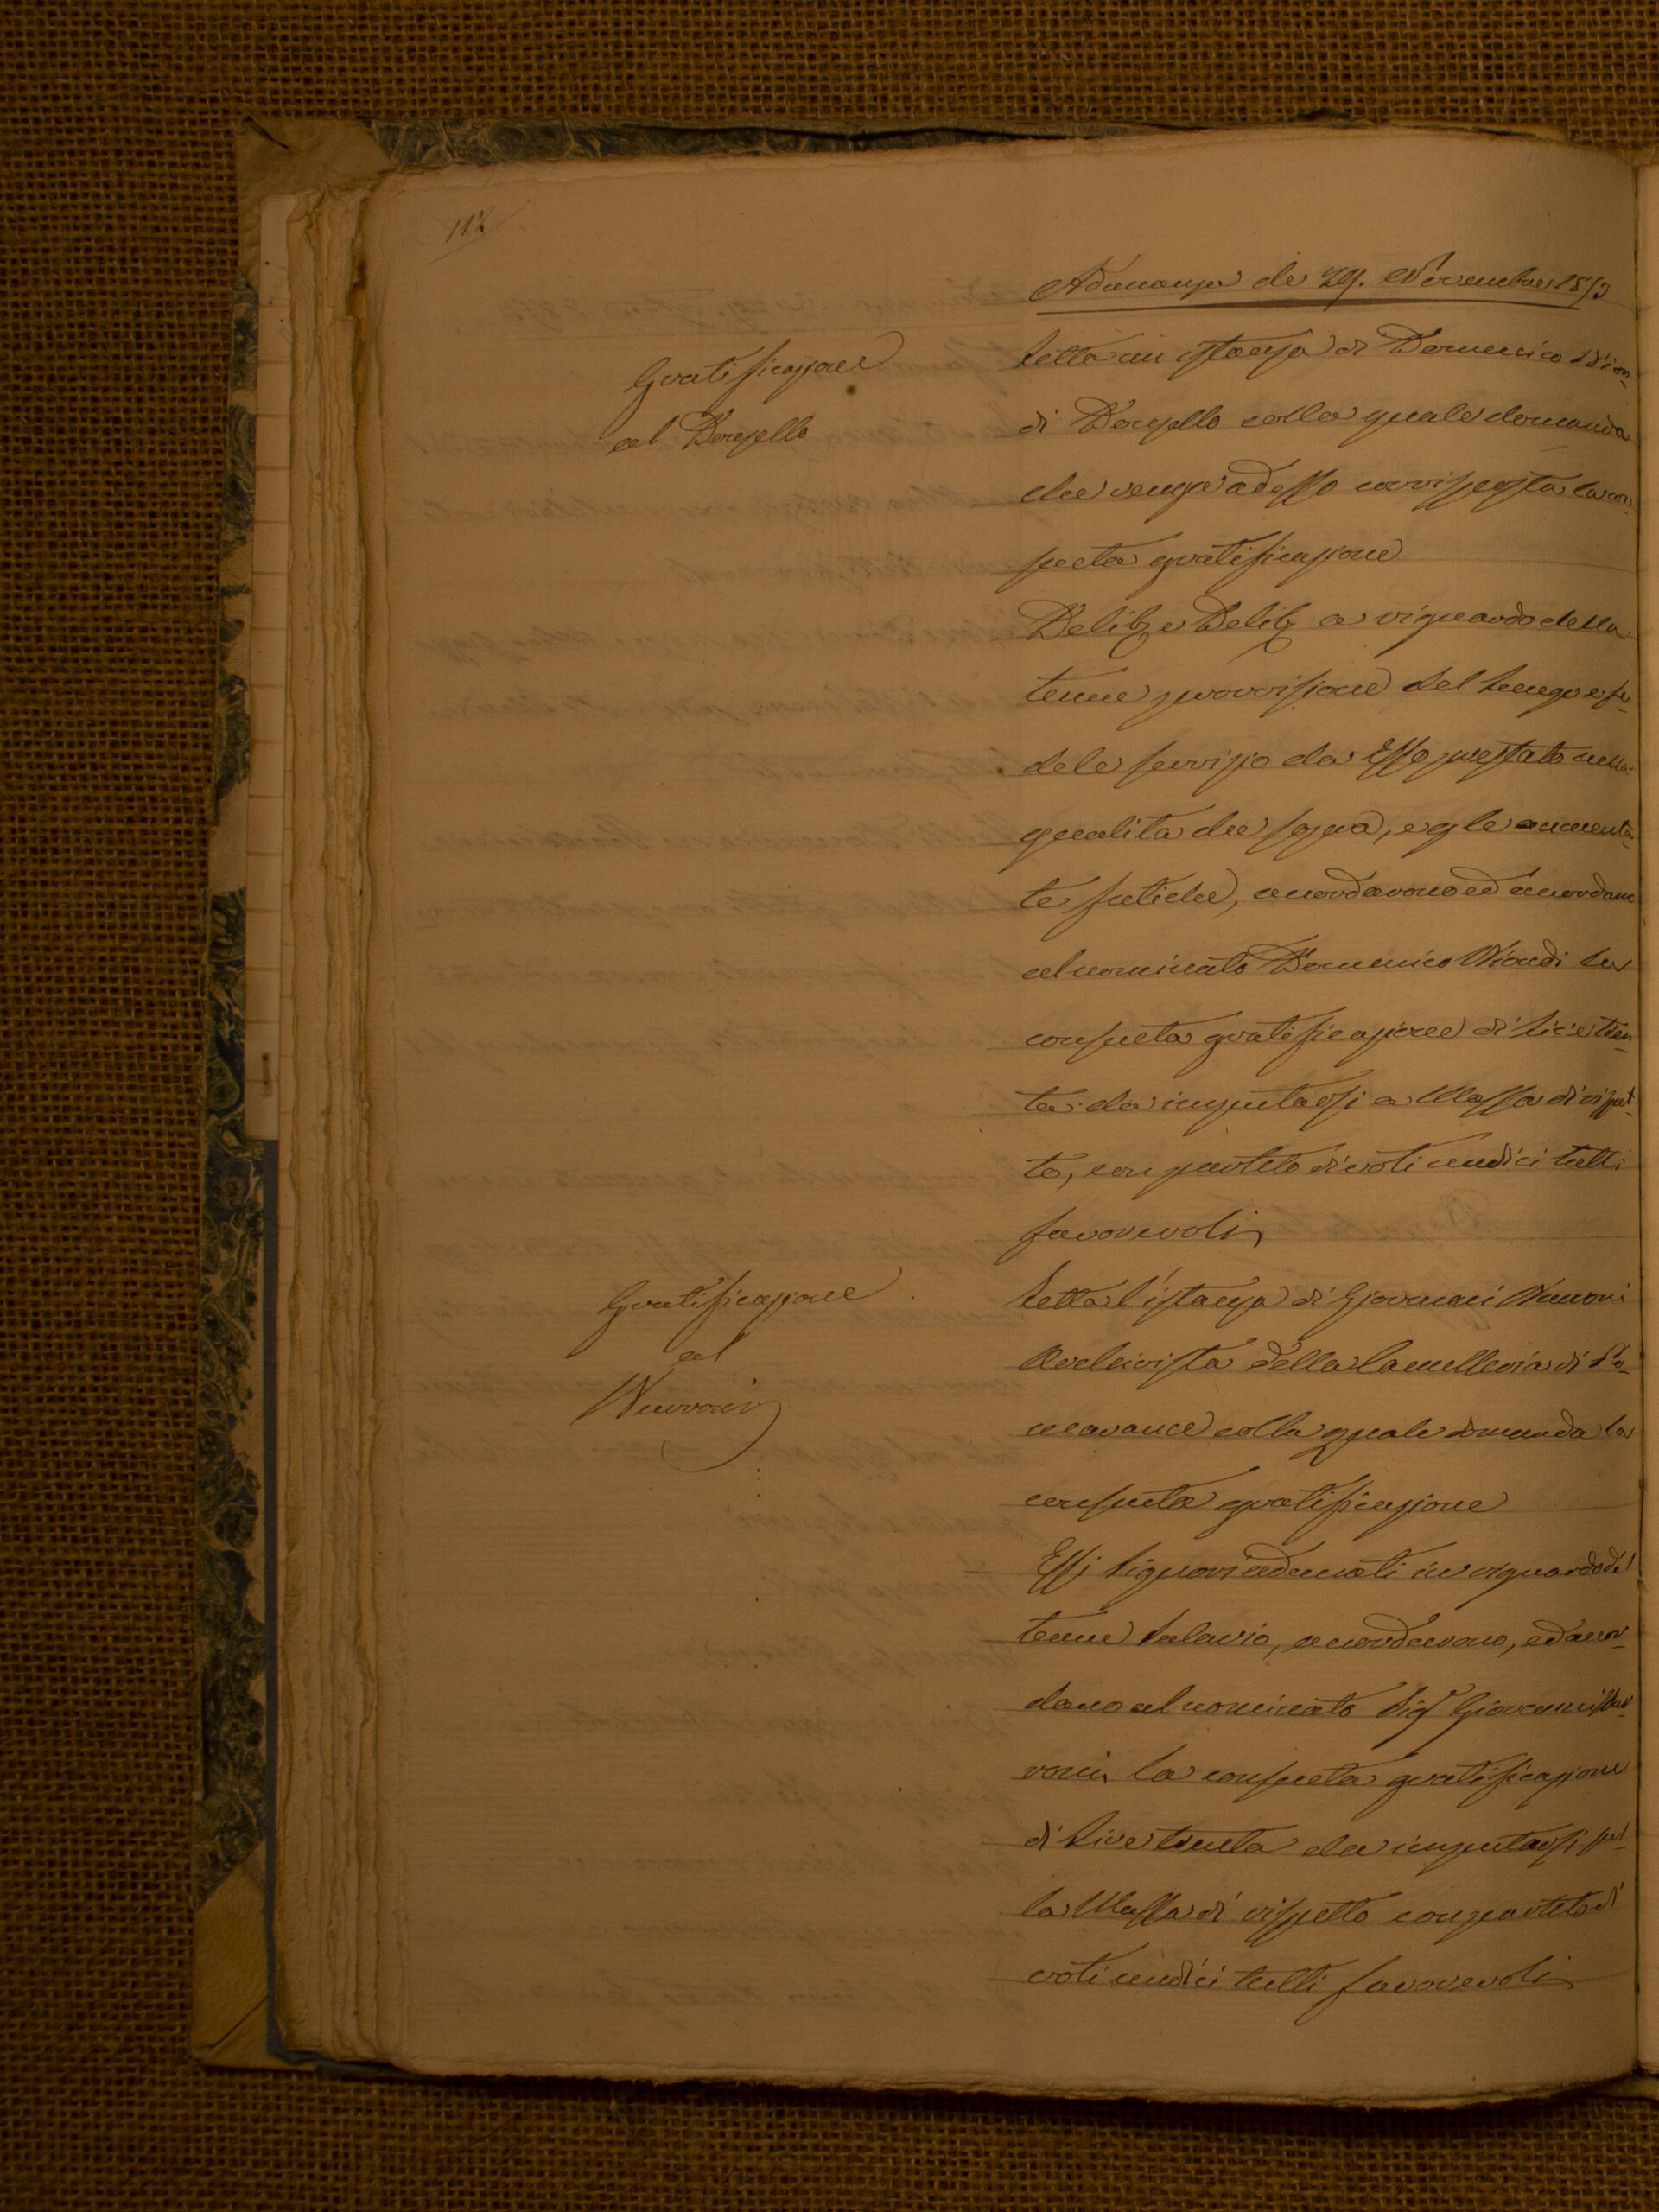 112
Adunanza de 29. Novembre 1853
Gratificazione
al Donzello
Letta un istanza di Domenico Bion-
di Donzello colla quale domanda
che venga ad esso corrisposta la con-
sueta gratificazione
Delib. e Delib. a riguardo della
tenue provvisione del lungo e fe-
dele servizio da Esso prestato nella
qualità che sopra, e p le aumenta-
te fatiche, accordarono ed accordano
al nominato Domenico Biondi la
consueta gratificazione di Lire tren-
ta da imputarsi a Massa di rispet-
to, con partito di voti undici tutti
favorevoli
Gratificazione
al
Nuvroni
Letta l'istanza di Giovanni
Archivista della Cancelleria di Po-
merance colla quale domanda la
consueta gratificazione
Essi Signori adunati in riguardo del
tenue Salario, accordarono, ed accor-
dano al nominato Sig Giovanni
roni la consueta gratificazione
di Lire trenta da imputarsi sul-
la Massa di rispetto con partito di
voti undici tutti favorevoli